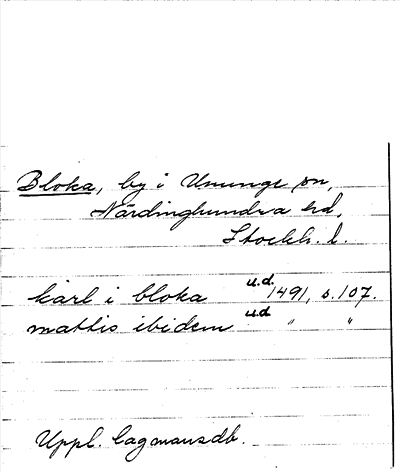 Bloka, by i Ununge sn,
Närdinghundra hd,
Stockh. l.
karl i bloka u.d. 1491, s. 107.
mattis ibidem u.d " "
Uppl. lagmansdb.